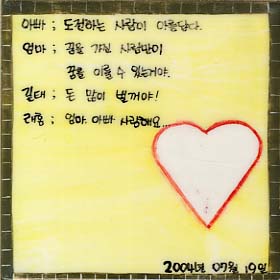 아빠 ; 도전하는 사람이 아름답다.
엄마 ; 꿈을 가진 사람만이
꿈을 이룰 수 있는거야.
길태 ; 돈 많이 벌꺼야!
래홍 ; 엄마. 아빠 사랑해요...
2004년 07월 19일